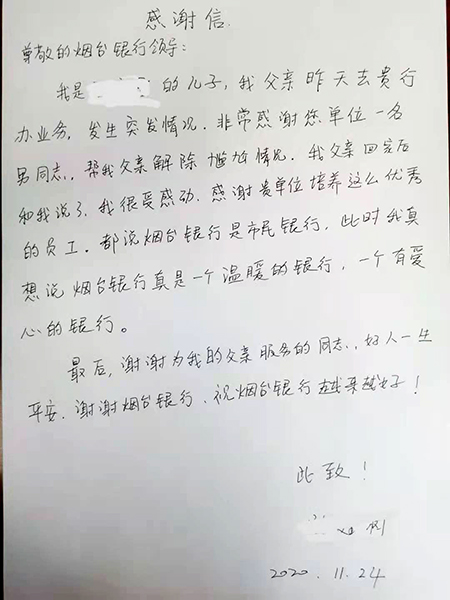 感谢信
尊敬的烟台银行领导:
我是 的儿子,我父亲昨天去贵行
办业务,发生突发情况.非常感谢您单位一名
男同志,帮我父亲解除尴尬情况.我父亲回家后
和我说了,我很受感动.感谢贵单位培养这么优秀
的员工.都说烟台银行是市民银行,此时我真
想说烟台银行真是一个温暖的银行,一个有爱
心的银行。
最后,谢谢为我的父亲服务的同志,好人一生
平安.谢谢烟台银行、祝烟台银行越来越好!
此致!
2020.11.24